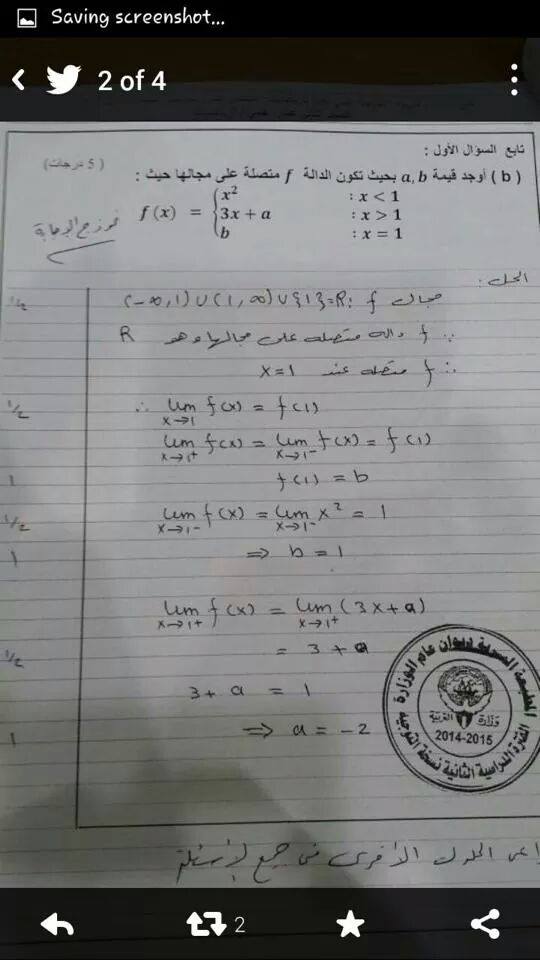 Saving screenshot...
2 of 4
تابع السؤال الأول :
( b ) أوجد قيمة a , b بحيث تكون الدالة f متصلة على مجالها حيث :
(5 درجات)
f (x) = { x² : x < 1
3x + a : x > 1
b : x = 1
نموذج الإجابة
الحل:
مجال f : (-∞,1) ∪ (1,∞) ∪ {1} = R
1/2
∵ f دالة متصلة على مجالها وهو R
∴ f متصلة عند x = 1
∴ lim x→1 f(x) = f(1)
1/2
lim x→1+ f(x) = lim x→1- f(x) = f(1)
f(1) = b
1
lim x→1- f(x) = lim x→1- x² = 1
1/2
⇒ b = 1
1
lim x→1+ f(x) = lim x→1+ (3x + a)
= 3 + a
1/2
3 + a = 1
⇒ a = -2
1
المطبعة السرية ديوان عام الوزارة
وزارة التربية
2014-2015
الفترة الدراسية الثانية نسخة
الحلول الأخرى في جميع الأسئلة
2